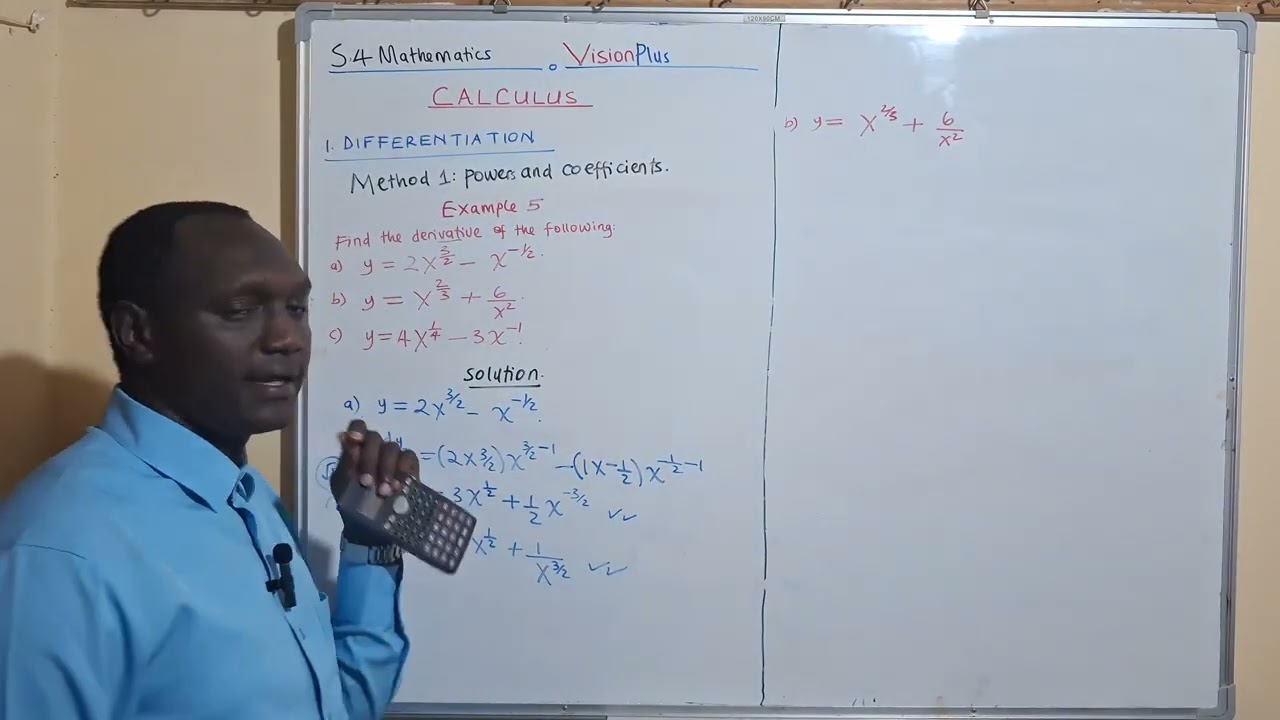 120X90CM
S.4 Mathematics VisionPlus
CALCULUS
1. DIFFERENTIATION
Method 1: powers and coefficients.
Example 5
Find the derivative of the following:
a) y = 2x^{3/2} - x^{-1/2}.
b) y = x^{2/3} + 6/x^2.
c) y = 4x^{1/4} - 3x^{-1}.
solution.
a) y = 2x^{3/2} - x^{-1/2}.
= (2x3/2) x^{3/2-1} - (1x-1/2) x^{-1/2-1}
3x^{1/2} + 1/2 x^{-3/2} ✓✓
x^{1/2} + 1/x^{3/2} ✓✓
b) y = x^{2/3} + 6/x^2